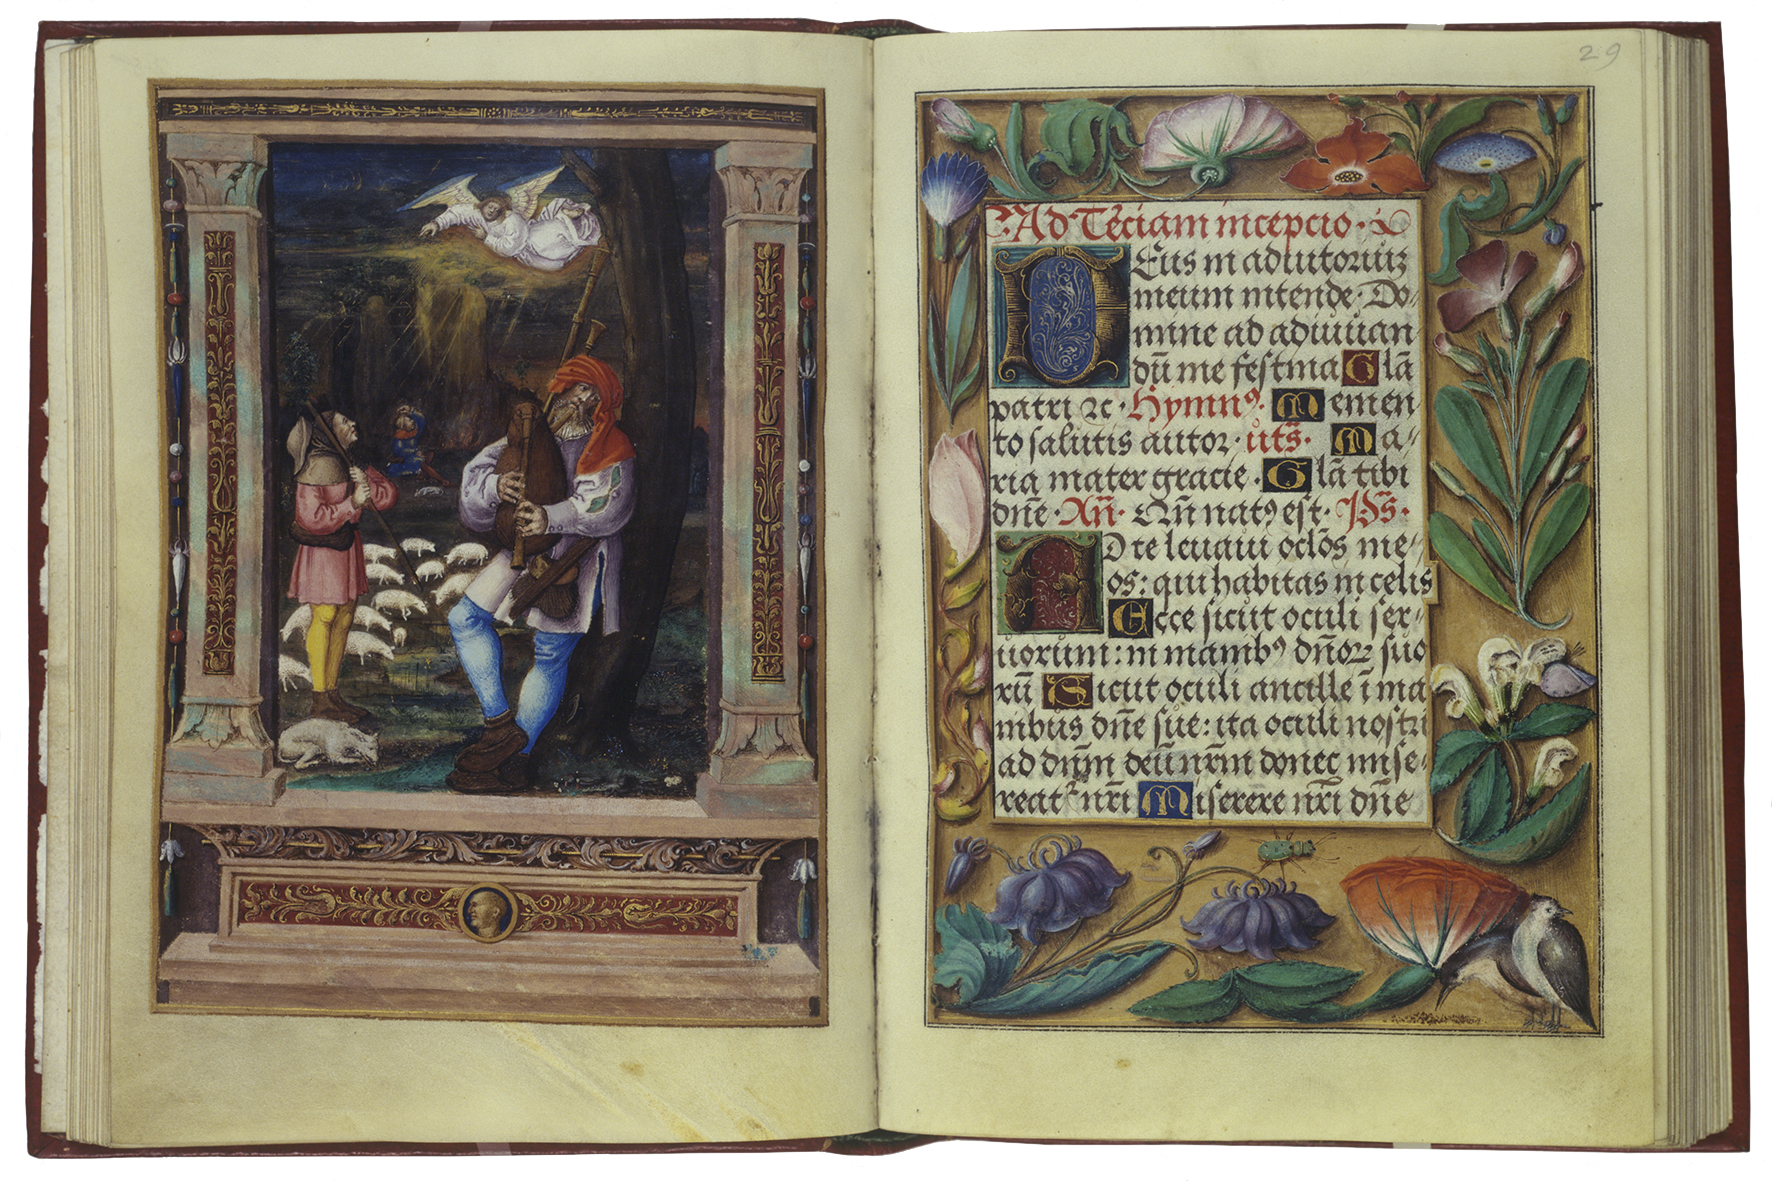 29
Ad Tēciam incepcio.
DEus in adiutoriuz
meum intende. Do/
mine ad adiuuan
dū me festina Glā
patri ꝛc. Hymnꝰ. Memen/
to salutis autor. uts̄. Ma/
ria mater gracie. Glā tibi
dn̄e. An̄. Qn̄ natꝰ est. Ps̄.
AD te leuaui oclōs me/
os: qui habitas in celis
Ecce sicut oculi ser/
uorum: in manibꝰ dn̄oꝝ suo
rū Sicut oculi ancille ī ma
nibus dn̄e sue: ita oculi nostri
ad dn̄m deū nr̄m donec mise/
reatᷣ nr̄i Miserere nr̄i dn̄e